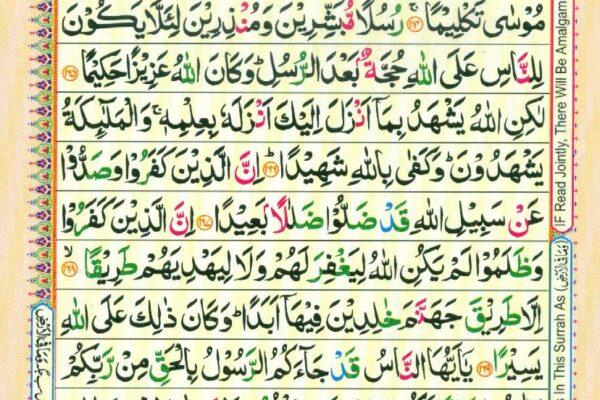 مُوْسٰى تَكْلِيْمًا ۚ﴿۱۶۴﴾ رُسُلًا مُّبَشِّرِيْنَ وَمُنْذِرِيْنَ لِئَلَّا يَكُوْنَ
لِلنَّاسِ عَلَى اللّٰهِ حُجَّةٌۢ بَعْدَ الرُّسُلِ ؕ وَكَانَ اللّٰهُ عَزِيْزًا حَكِيْمًا ﴿۱۶۵﴾
لٰكِنِ اللّٰهُ يَشْهَدُ بِمَاۤ اَنْزَلَ اِلَيْكَ اَنْزَلَهٗ بِعِلْمِهٖ ۚ وَالْمَلٰٓئِكَةُ
يَشْهَدُوْنَ ؕ وَكَفٰى بِاللّٰهِ شَهِيْدًا ؕ﴿۱۶۶﴾ اِنَّ الَّذِيْنَ كَفَرُوْا وَصَدُّوْا
عَنْ سَبِيْلِ اللّٰهِ قَدْ ضَلُّوْا ضَلٰلًاۢ بَعِيْدًا ﴿۱۶۷﴾ اِنَّ الَّذِيْنَ كَفَرُوْا
وَظَلَمُوْا لَمْ يَكُنِ اللّٰهُ لِيَغْفِرَ لَهُمْ وَلَا لِيَهْدِيَهُمْ طَرِيْقًا ۙ﴿۱۶۸﴾
اِلَّا طَرِيْقَ جَهَنَّمَ خٰلِدِيْنَ فِيْهَاۤ اَبَدًا ؕ وَكَانَ ذٰلِكَ عَلَى اللّٰهِ
يَسِيْرًا ﴿۱۶۹﴾ يٰۤاَيُّهَا النَّاسُ قَدْ جَآءَكُمُ الرَّسُوْلُ بِالْحَقِّ مِنْ رَّبِّكُمْ
IF Read Jointly, There Will Be Amalgam
In This Surrah As